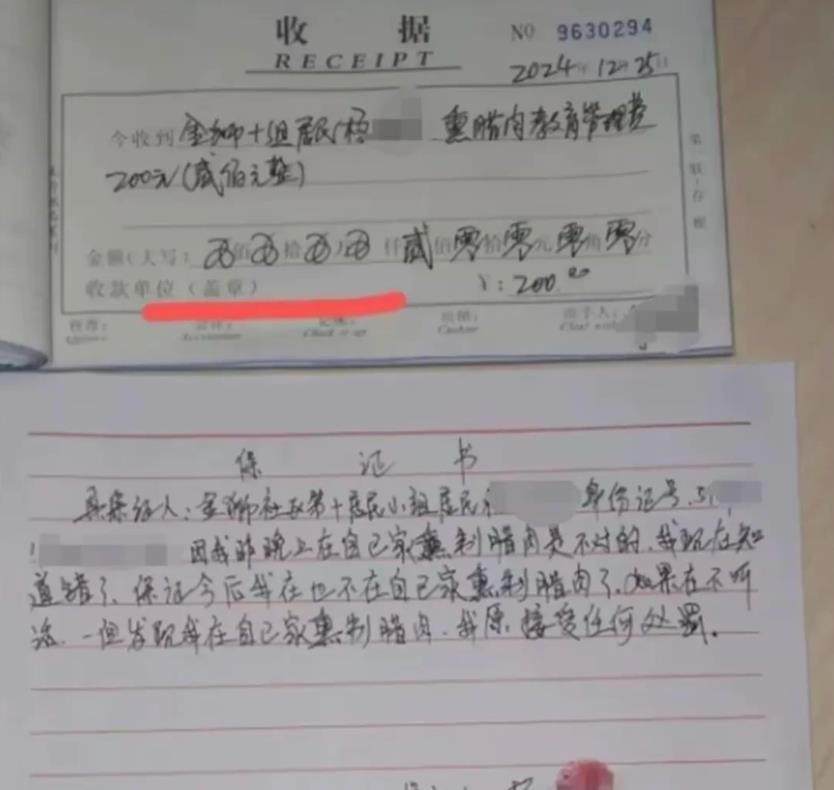 收据
RECEIPT
NO 9630294
2024年12月25日
今收到 金狮十组居民杨 熏腊肉教育管理费
200元(贰佰元整)
金额(大写) 佰 拾 万 仟 贰佰零拾零元零角零分
收款单位(盖章) ¥:200.00
第一联:存根
保证书
具保证人:金狮社区第十居民小组居民 身份证号,51
因我昨晚上在自己家熏制腊肉是不对的,我现在知
道错了,保证今后我在也不在自己家熏制腊肉了,如果在不听
话,一但发现我在自己家熏制腊肉,我愿接受任何处罚。